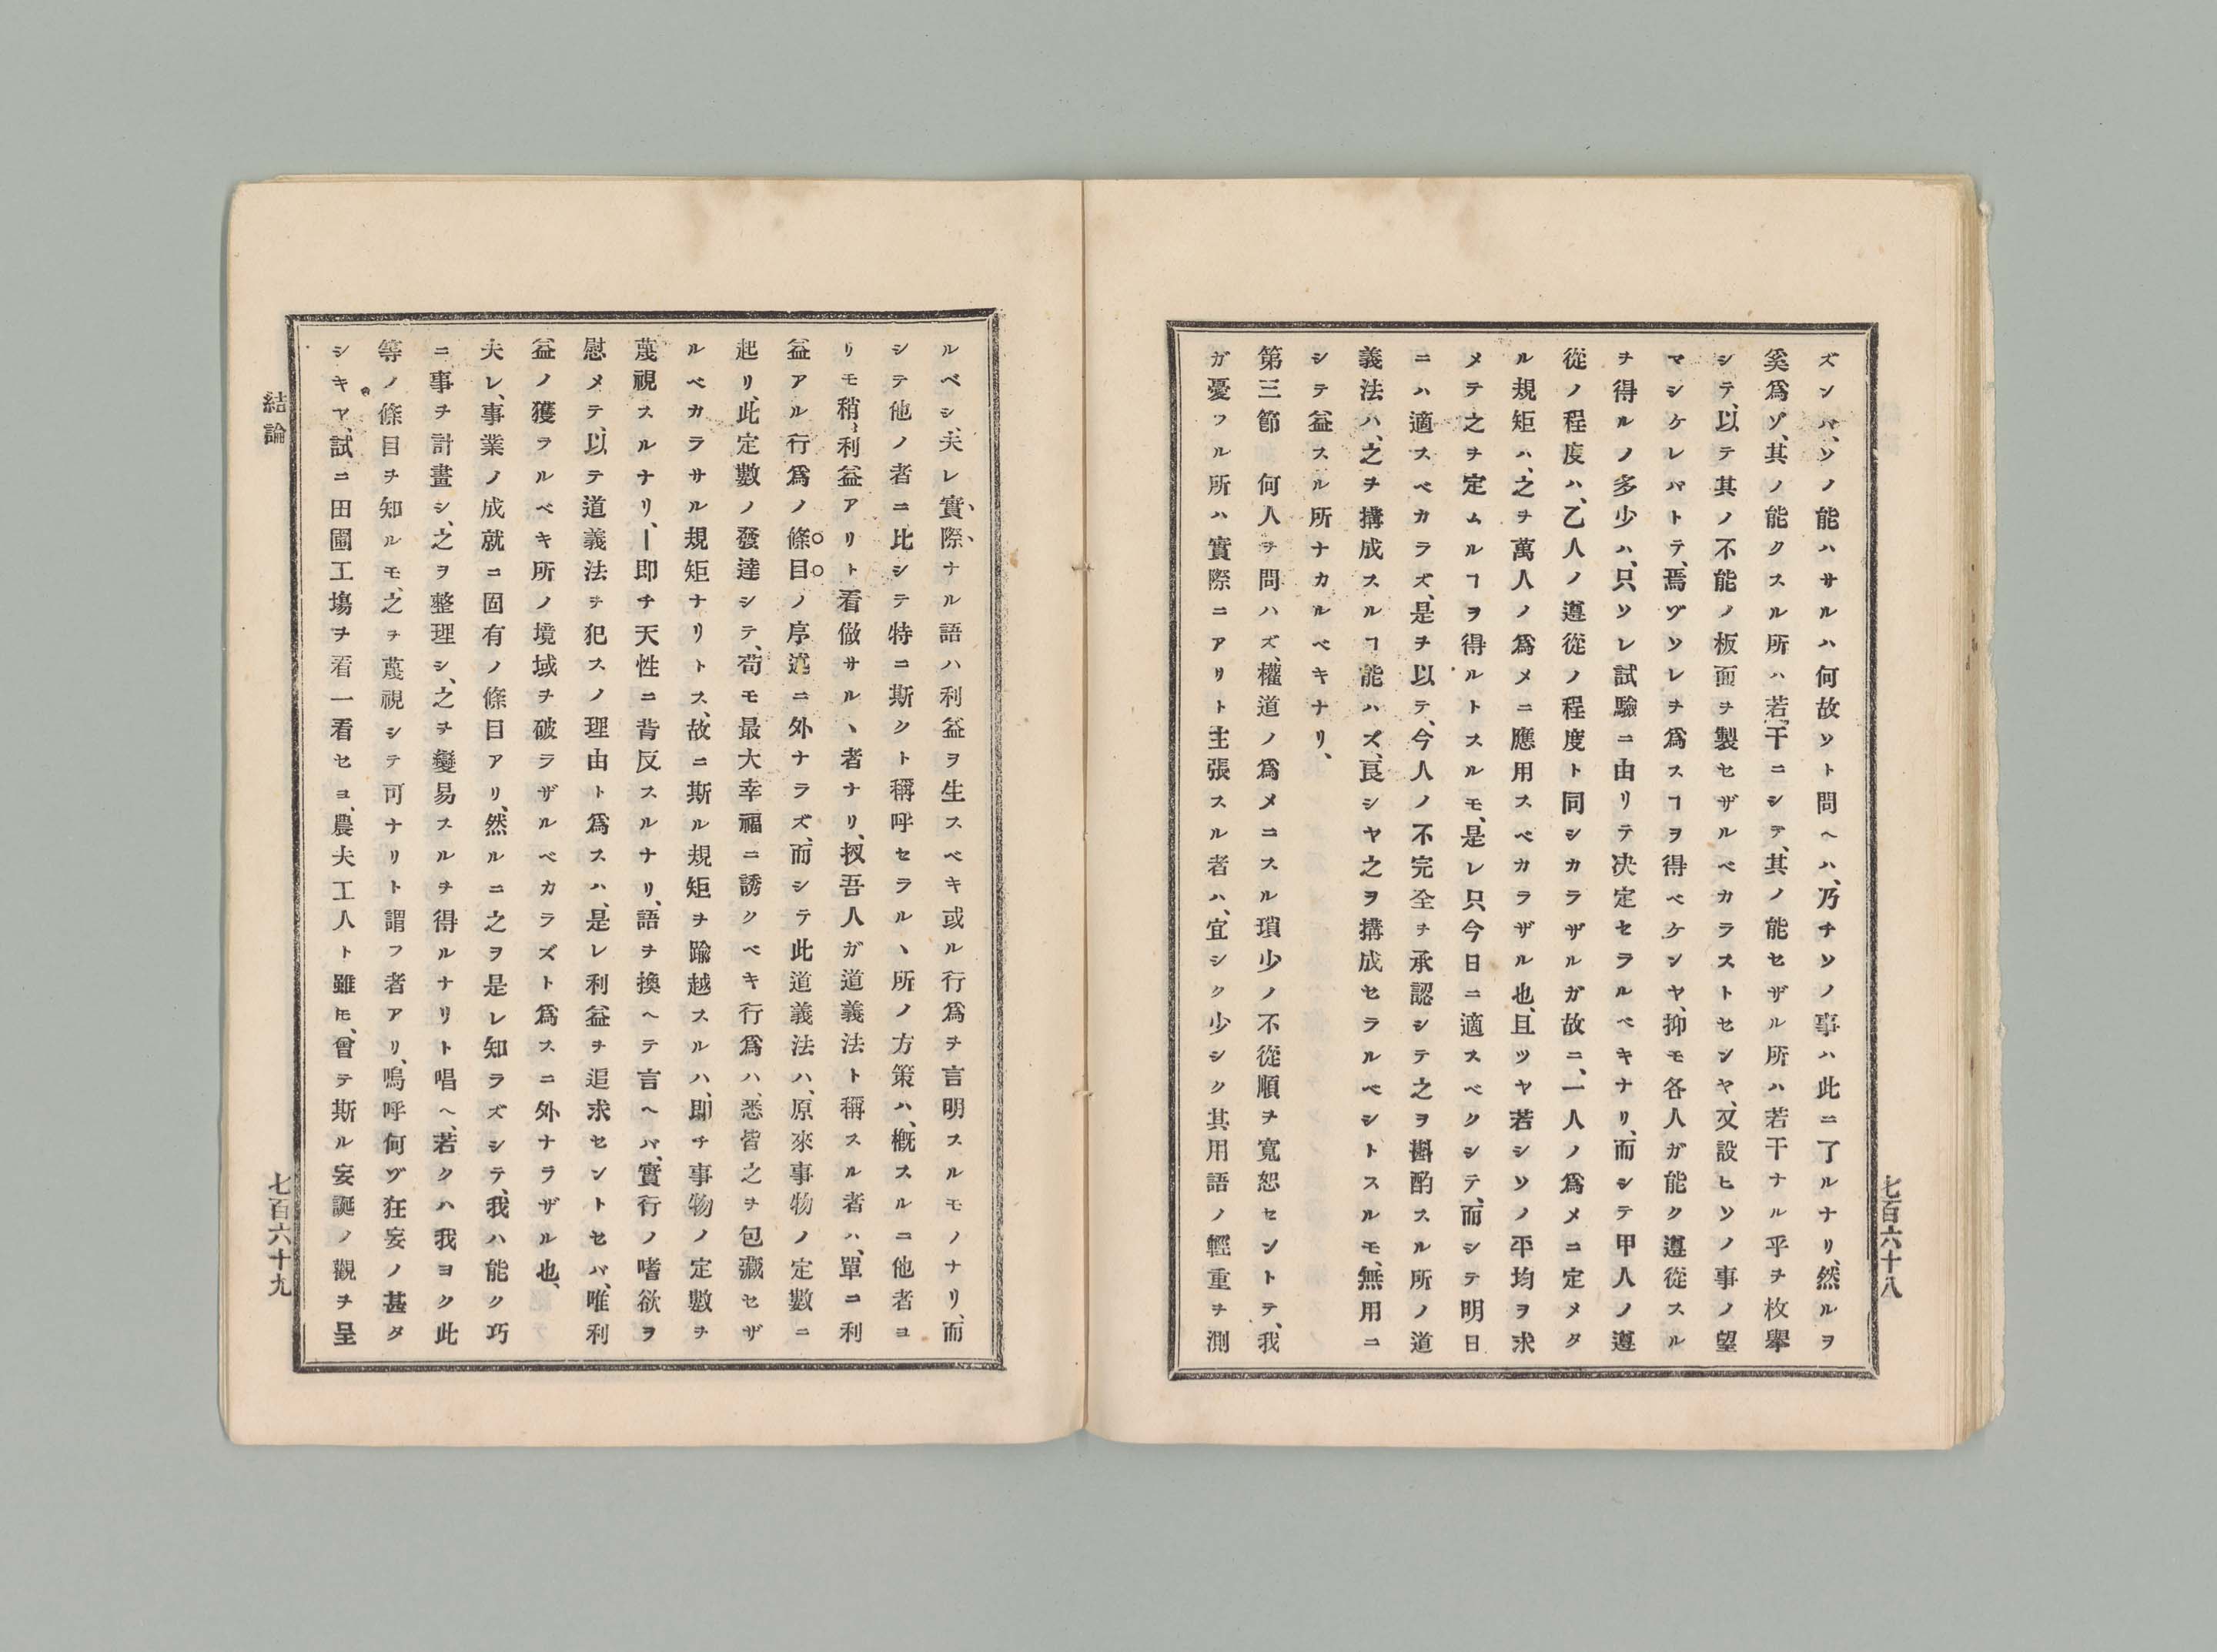 ズンバ、ソノ能ハサルハ何故ソト問ヘハ、乃チソノ事ハ此ニ了ルナリ、然ルヲ
奚爲ゾ、其ノ能クスル所ハ若干ニシテ、其ノ能セザル所ハ若干ナル乎ヲ枚擧
シテ、以テ其ノ不能ノ板面ヲ製セザルベカラストセンヤ、又設ヒソノ事ノ望
マシケレバトテ、焉ヅソレヲ爲スヿヲ得ベケンヤ、抑モ各人ガ能ク遵從スル
ヲ得ルノ多少ハ、只ソレ試驗ニ由リテ决定セラルベキナリ、而シテ甲人ノ遵
從ノ程度ハ、乙人ノ遵從ノ程度ト同シカラザルガ故ニ、一人ノ爲メニ定メタ
ル規矩ハ、之ヲ萬人ノ爲メニ應用スベカラザル也、且ツヤ若シソノ平均ヲ求
メテ之ヲ定ムルヿヲ得ルトスルモ、是レ只今日ニ適スベクシテ、而シテ明日
ニハ適スベカラズ、是ヲ以テ、今人ノ不完全ヲ承認シテ之ヲ斟酌スル所ノ道
義法ハ、之ヲ搆成スルヿ能ハズ、良シヤ之ヲ搆成セラルベシトスルモ、無用ニ
シテ益スル所ナカルベキナリ、
第三節　何人ヲ問ハズ、權道ノ爲メニスル瑣少ノ不從順ヲ寬恕セントテ、我
ガ憂フル所ハ實際ニアリト主張スル者ハ、宜シク少シク其用語ノ輕重ヲ測
七百六十八
ルベシ、夫レ實際ナル語ハ利益ヲ生スベキ或ル行爲ヲ言明スルモノナリ、而
シテ他ノ者ニ比シテ特ニ斯クト稱呼セラルヽ所ノ方策ハ、槪スルニ他者ヨ
リモ稍〻利益アリト看做サルヽ者ナリ、扠吾人ガ道義法ト稱スル者ハ、單ニ利
益アル行爲ノ條目ノ序述ニ外ナラズ、而シテ此道義法ハ、原來事物ノ定數ニ
起リ、此定數ノ發達シテ、苟モ最大幸福ニ誘クベキ行爲ハ、悉皆之ヲ包藏セザ
ルベカラサル規矩ナリトス、故ニ斯ル規矩ヲ踰越スルハ、即チ事物ノ定數ヲ
蔑視スルナリ、ー即チ天性ニ背反スルナリ、語ヲ換ヘテ言ヘバ、實行ノ嗜欲ヲ
慰メテ、以テ道義法ヲ犯スノ理由ト爲スハ、是レ利益ヲ追求セントセバ、唯利
益ノ獲ラルベキ所ノ境域ヲ破ラザルベカラズト爲スニ外ナラザル也、
夫レ、事業ノ成就ニ固有ノ條目アリ、然ルニ之ヲ是レ知ラズシテ、我ハ能ク巧
ニ事ヲ計畫シ、之ヲ整理シ、之ヲ變易スルヲ得ルナリト唱ヘ、若クハ我ヨク此
等ノ條目ヲ知ルモ、之ヲ蔑視シテ可ナリト謂フ者アリ、嗚呼何ヅ狂妄ノ甚タ
シキヤ、試ニ田圃工塲ヲ看一看セヨ、農夫工人ト雖ㇳモ、曾テ斯ル妄誕ノ觀ヲ呈
結論
七百六十九